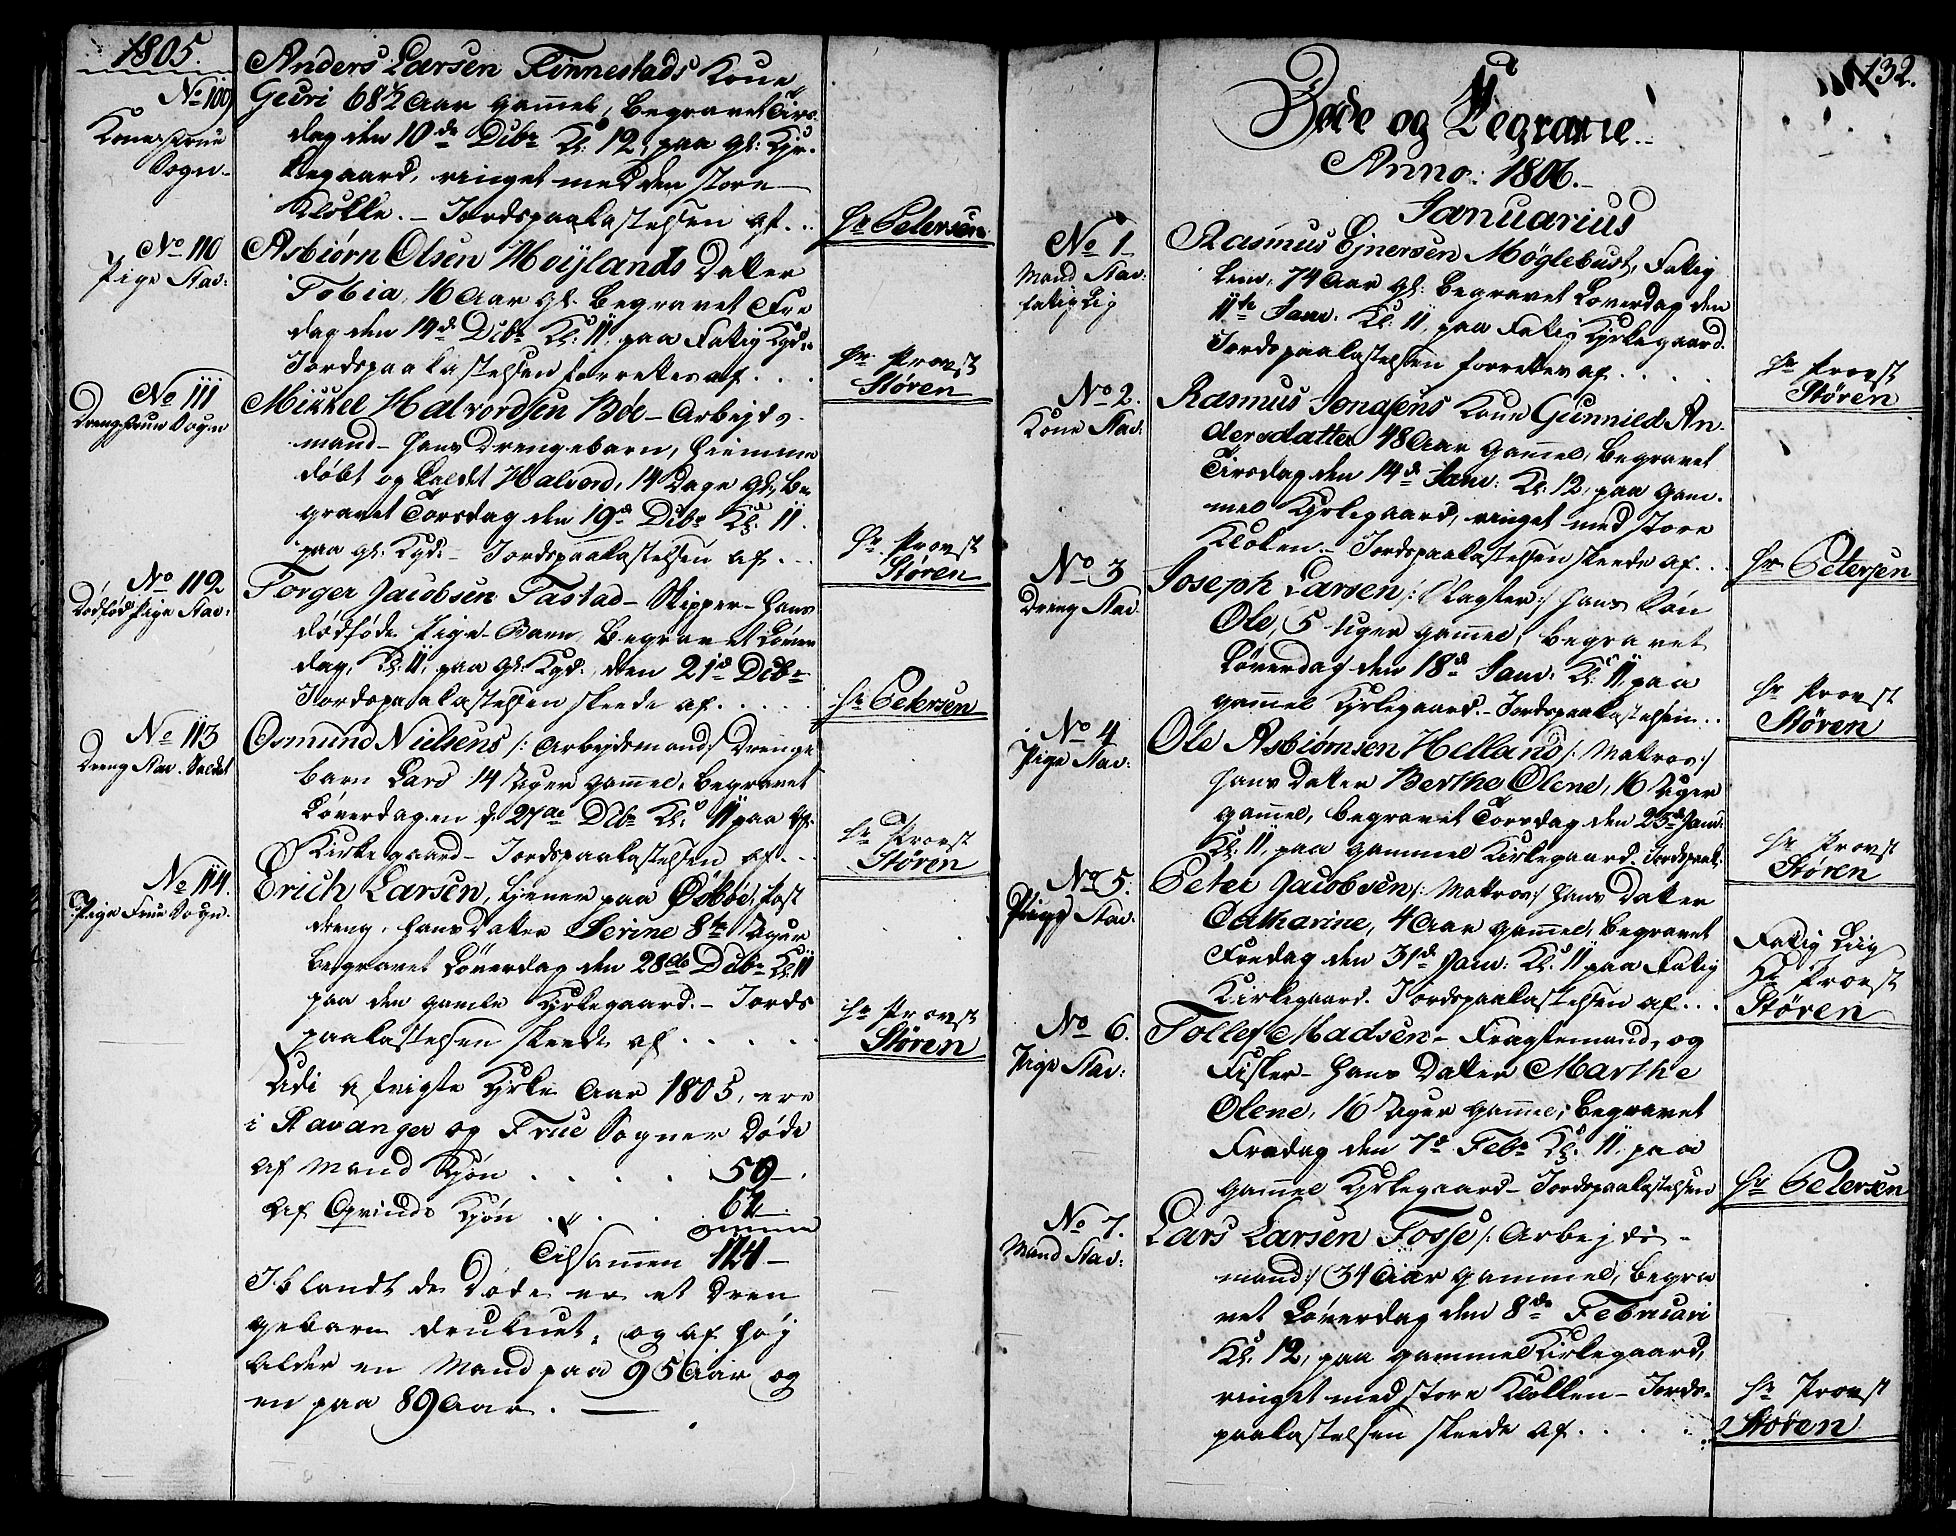 1805.
No 109
Kone Frue
Sogn.
Anders Larsen Finnestads Kone
Guri 68½ Aar gammel, begravet Tirs
dag den 10de Dcbr Kl: 12, paa gl: Kyr-
kegaard, ringet med den store
Klokke. – Jordspaakastelsen af . .
Hr Petersen
No 110
Pige Stav:
Asbiørn Olsen Høylands Datter
Tobia, 16 Aar gl. begravet Fre
dag den 14de Dcbr Kl: 11, paa Fattig Kgd:
Jordspaakastelsen forrettes af . . .
Hr Provst
Støren
No 111
Dreng Frue Sogn
Mikkel Halvordsen Bøe – Arbejds-
mand – hans Drengebarn, hiemme
døbt og kaldet Halvord, 14 Dage gl, be
gravet Torsdag den 19de Dcbr Kl. 11.
paa gl: Kgd: – Jordspaakastelsen af . . .
Hr Provst
Støren
No 112
Dødfød Pige Stav:
Torger Jacobsen Tastad – Skipper – hans
dødføde Pige-Barn, begravet Løver
dag, Kl: 11, paa gl: Kgd. den 21de Dcbr
Jordspaakastelsen skeede af . . . . .
Hr Petersen
No 113
Dreng Stav.
Osmund Nielsens /: Arbejdsmand :/ Drenge
barn Lars 14 Uger gammel, begravet
Løverdagen d. 27de Dcbr Kl: 11 paa gl:
Kirkegaard – Jordspaakastelsen af . . .
Hr Provst
Støren
No 114.
Pige Frue Sogn.
Erich Larsen, tjener paa
dreng, hans Datter Serine 8te Uger
begravet Løverdag den 28de Dcbr Kl. 11
paa den gamle Kyrkegaard. – Jords
paakastelsen skeede af . . . . .
Hr Provst
Støren
Udi afvigte Kyrke Aar 1805, ere
i Stavanger og Frue Sogner Døde
af Mand Kjøn . . . . . 59 –
af Qvinde Kjøn . . . . 62.
Tilsammen 121 –
Iblandt de Døde er et Dren
gebarn druknet, og af høj
Alder en Mand paa 95 Aar og
en paa 89 Aar. —
132.
Døde og Begravne.
Anno: 1806. –
Januarius
No 1
Mand Stav:
fattig Lig
Rasmus Ejnersen Møglebust, Fattig
Lem, 74 Aar gl: begravet Løverdag den
11te Janv: Kl: 11, paa Fattig Kyrkegaard.
Jordspaakastelsen forrettes af . . . .
Hr Provst
Støren
No 2.
Kone Stav:
Rasmus Jonasens Kone Gunnild An-
dersdatter 48 Aar gammel, begravet
Tirsdag den 14de Janv: Kl: 12, paa gam-
mel Kyrkegaard, ringet med store
Kloken. – Jordspaakastelsen skeede af . .
Hr Petersen
No 3
Dreng Stav
Joseph Larsen /: Slagter :/ hans Søn
Ole, 5 Uger gammel, begravet
Løverdag den 18de Janv: Kl: 11 paa
gammel Kyrkegaard. – Jordspaakastelsen . .
Hr Provst
Støren
No 4
Pige Stav:
Ole Asbiørnsen Helland /: Matros :/
hans Datter Berthe Olene, 16 Uger
gammel, begravet Torsdag den 23de Janv:
Kl: 11, paa gammel Kirkegaard. Jordspaak:
Hr Provst
Støren
No 5.
Pige Stav:
Peter Jacobsen /: Matros :/ hans Datter
Catharine, 4 Aar gammel, begravet
Fredag den 31de Janv: Kl: 11 paa Fattig
Kirkegaard. Jordspaakastelsen af . . .
Fattig Liig
Hr Provst
Støren
No 6.
Pige Stav:
Tollef Madsen – Fragtemand, og
Fisker – hans Datter Marthe
Olene, 16 Uger gammel, begravet
Fredag den 7de Febr Kl: 11, paa
gammel Kyrkegaard – Jordspaakastelsen
Hr Petersen
No 7.
Mand Stav:
Lars Larsen Fosse /: Arbejds-
mand :/ 34 Aar gammel, begra
vet Løverdag den 8de Februari
Kl. 12, paa gammel Kirkegaard,
ringet med store Klokken – Jords-
paakastelsen skeede af . . . . .
Hr Provst
Støren